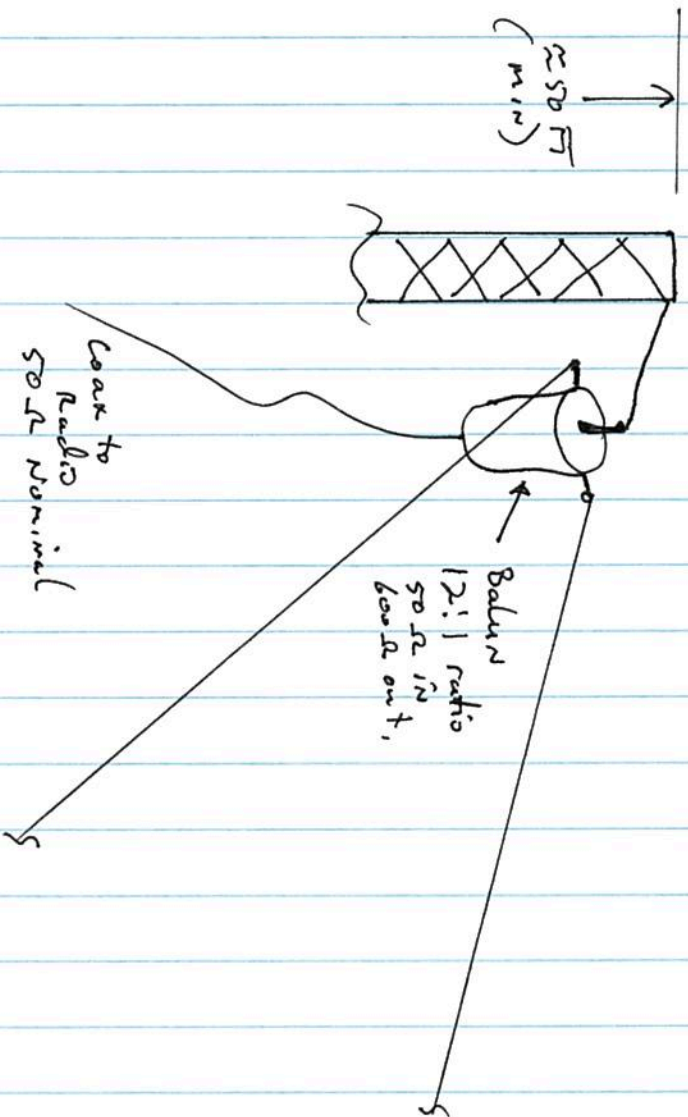 ≈ 50 m
(min)
Balun
12:1 ratio
50 Ω in
600 Ω out.
Coax to
Radio
50 Ω Nominal